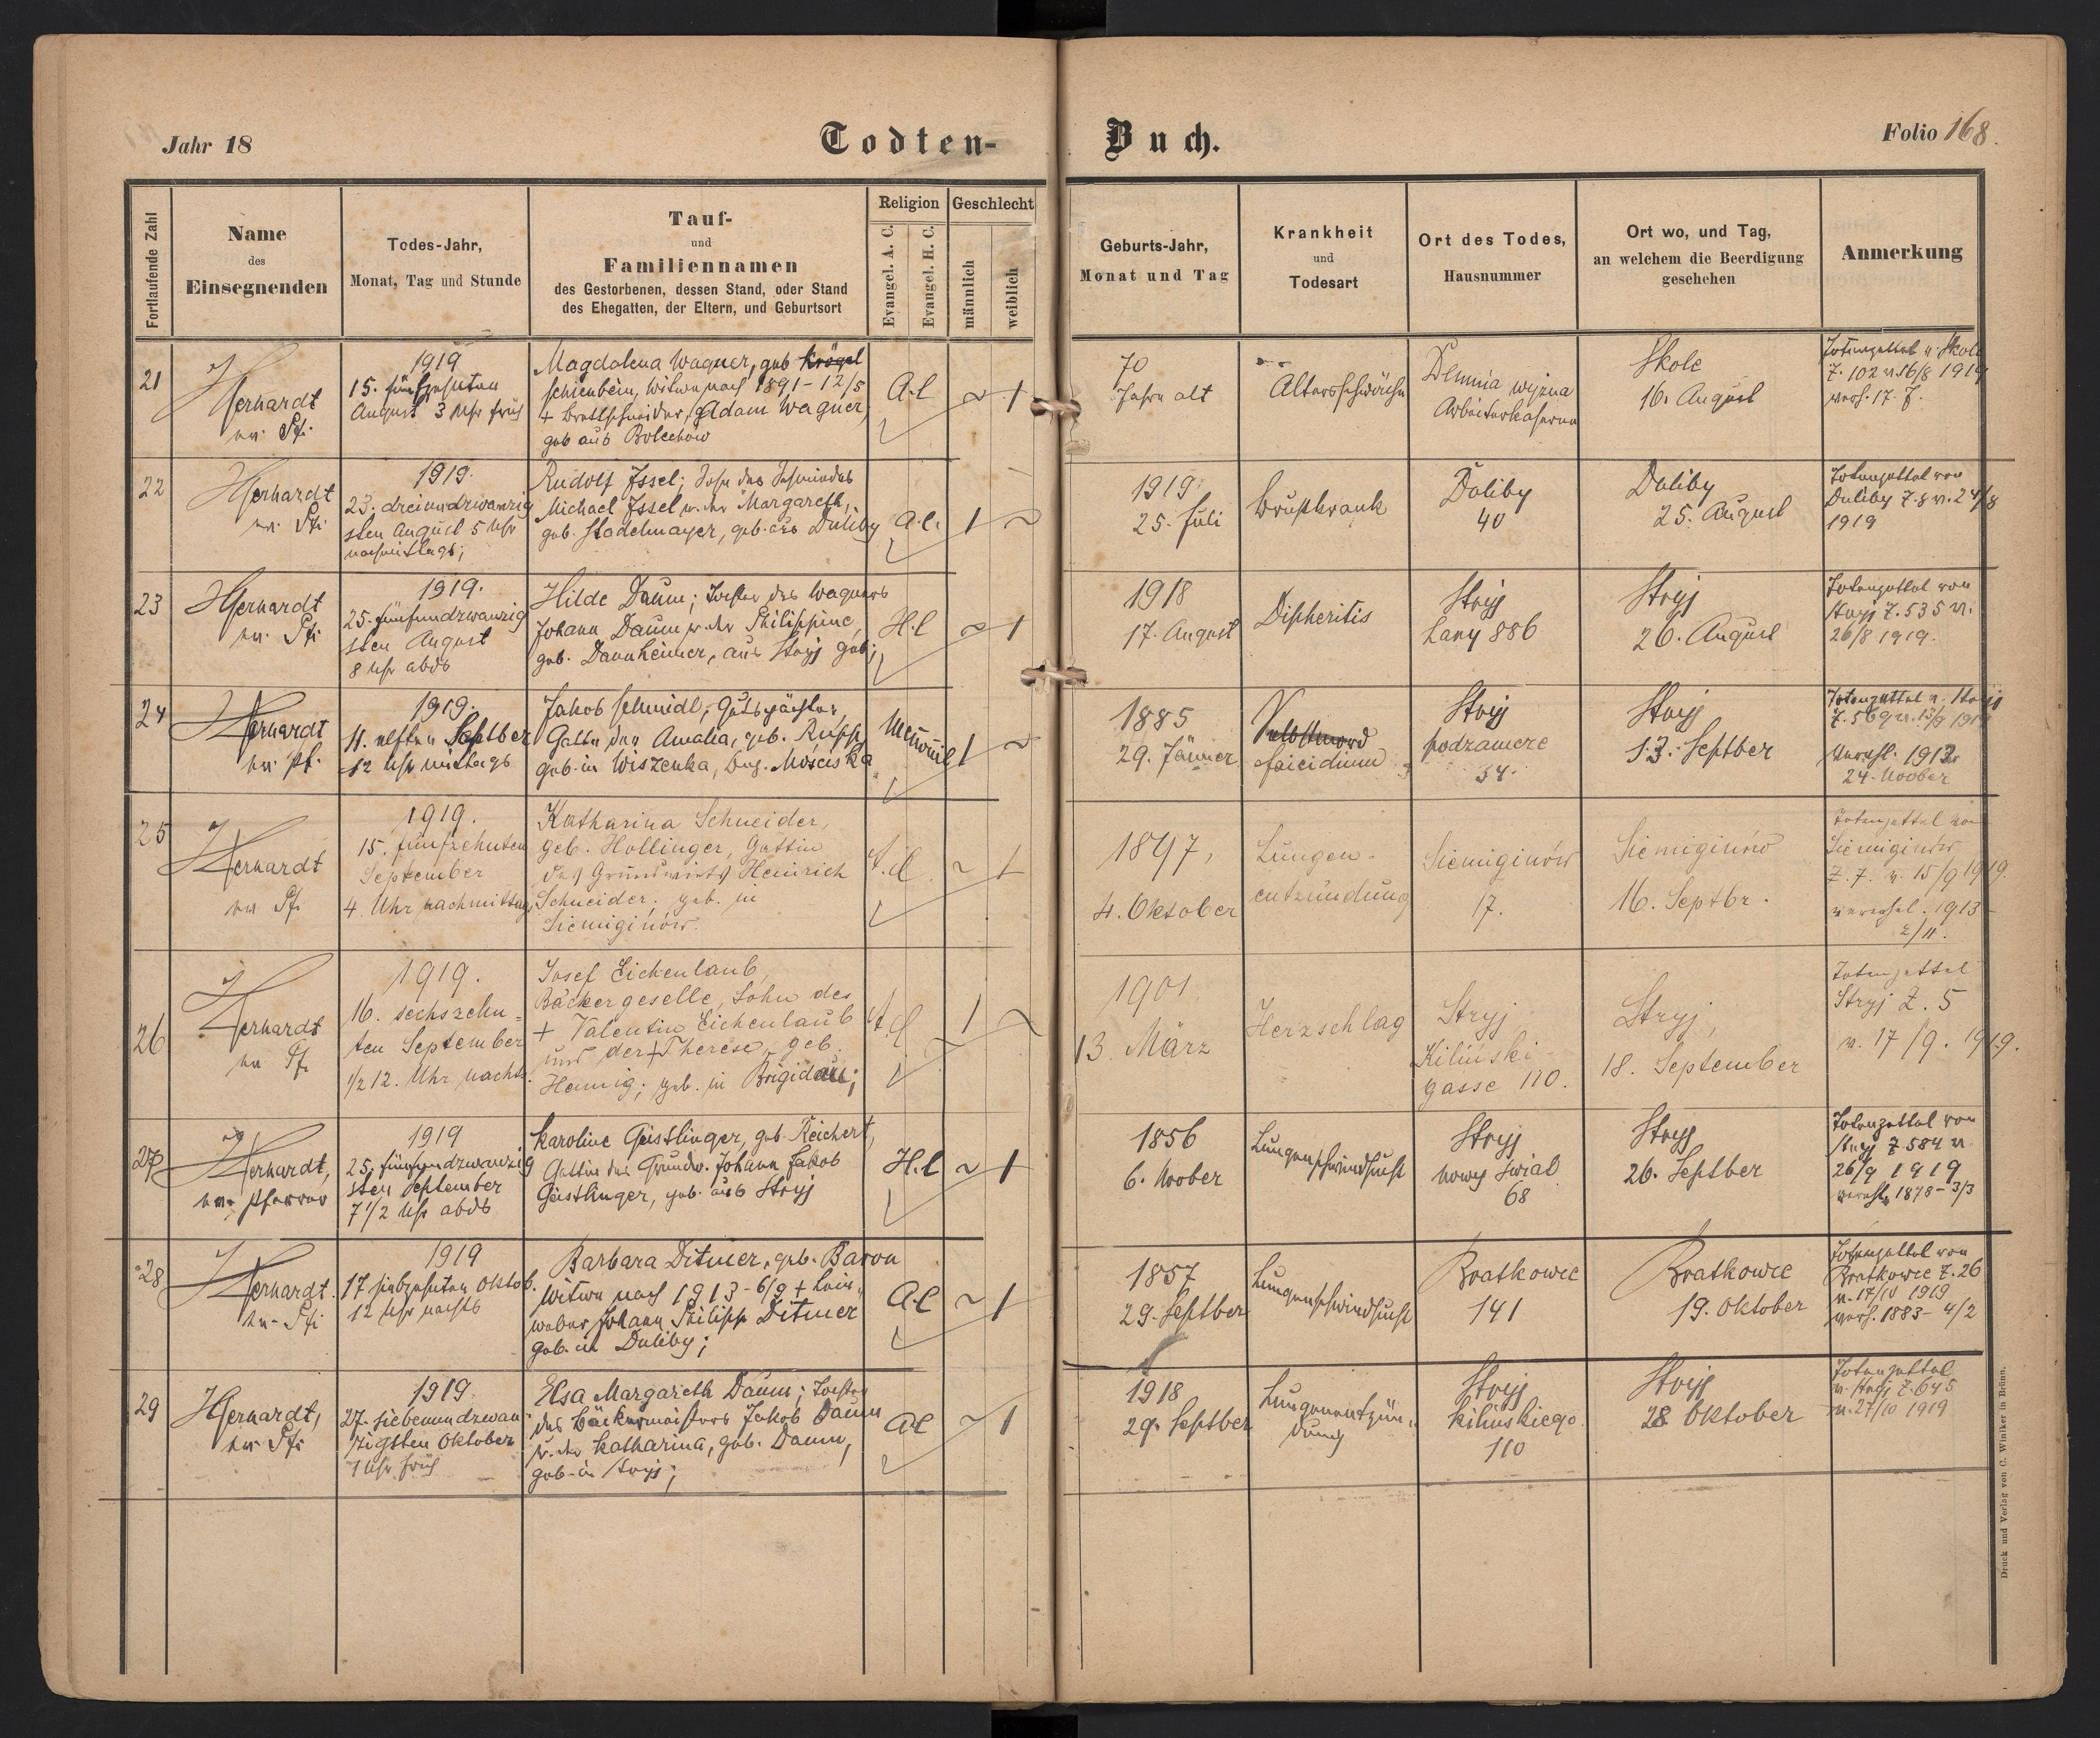 Jahr 18
Todten-
Buch.
Folio 168.
Fortlaufende Zahl
Name
des
Einsegnenden
Todes-Jahr,
Monat, Tag und Stunde
Tauf-
und
Familiennamen
des Gestorbenen, dessen Stand, oder Stand
des Ehegatten, der Eltern, und Geburtsort
Religion
Evangel. A. C.
Evangel. H. C.
Geschlecht
männlich
weiblich
Geburts-Jahr,
Monat und Tag
Krankheit
und
Todesart
Ort des Todes,
Hausnummer
Ort wo, und Tag,
an welchem die Beerdigung
geschehen
Anmerkung
21
Gerhardt
1919
15. fünfzehnten
August 3 Uhr früh
Magdalena Wagner, geb. Krögel
Schienbein, Witwe nach 1891-12/5
+ Brettschneider, Adam Wagner,
geb. aus Bolechów
A.C
~ 1
70
Jahre alt
Altersschwäche
Demnia wyżna
Arbeiterkaserne
Skole
16. August
Totenzettel v. Skole
Z. 102 v. 16/8 1919
22
Gerhardt
1919.
23. dreiundzwanzig
sten August 5 Uhr
nachmittags;
Rudolf Issel; Sohn des Schmiedes
Michael Issel u. der Margareth,
geb. Stadelmayer, geb. aus Duliby
A.C.
1 ~
1919
25. Juli
brustkrank
Doliby
40
Duliby
25. August
Totenzettel von
Duliby Z. 8 v. 24/8
1919
23
Gerhardt
1919.
25. fünfundzwanzig
sten August
8 Uhr abds
Hilde Daum; Tochter des Wagners
Johann Daum u. der Philippine,
geb. Dannheimer, aus Stryj geb;
H.C
~ 1
1918
17. August
Dipheritis
Stryj
Lany 886
Stryj
26. August
Totenzettel von
Stryj Z. 535 v.
26/8 1919.
24
Gerhardt
1919.
11. elften Septber
12 Uhr mittags
Jakob Schmidt, Gutspächter,
Gatte der Amalia, geb. Rupp
geb. in Wiszenka, bez. Mościska
1 ~
1885
29. Jänner
Selbstmord
Stryj
podzamcze
34.
Stryj
13. Septber
Totenzettel v. Stryj
Z. 569 v. 13/9 1919
Verehl. 1912
24. Novber
25
Gerhardt
1919.
15. fünfzehnten
September
4. Uhr nachmittags
Katharina Schneider,
geb. Hollinger, Gattin
des Grundwirts Heinrich
Schneider; geb. in
Siemiginów.
A.C.
~ 1
1897,
4. Oktober
Lungen-
entzündung
Siemiginów
17.
Siemiginów
16. Septbr.
Totenzettel von
Siemiginów
Z. 7. v. 15/9 1919.
verehel. 1913
2/11.
26
Gerhardt
1919.
16. sechszehn-
ten September
1/2 12. Uhr nachts.
Josef Eichenlaub,
Bäckergeselle, Sohn des
+ Valentin Eichenlaub
und der + Therese, geb.
Hennig; geb. in Brigidau;
A.C
1 ~
1901
13. März
Herzschlag
Stryj
Kiliński-
gasse 110.
Stryj,
18. September
Totenzettel
Stryj Z. 5
v. 17/9. 1919.
27
Gerhardt,
Pfarrer
1919
25. fünfundzwanzig
sten September
7 1/2 Uhr abds
Karoline Geistlinger, geb. Reichert,
Gattin des Grundw. Johann Jakob
Geistlinger, geb. aus Stryj
H.C
~ 1
1856
6. Novber
Lungenschwindsucht
Stryj
nowy świat
68
Stryj
26. Septber
Totenzettel von
Stryj Z 584 v.
26/9 1919
verehl. 1878-3/3
28
Gerhardt.
1919
17 siebzehnten Oktob.
12 Uhr nachts
Barbara Ditmer, geb. Baron
Witwe nach 1913-6/9 + Lein-
weber Johann Philipp Ditmer
geb. in Duliby;
A.C
~ 1
1857
29. Septber
Lungenschwindsucht
Bratkowce
141
Bratkowce
19. Oktober
Totenzettel von
Bratkowce Z. 26
v. 17/10 1919
verh. 1883-4/2
29
Gerhardt,
1919.
27. siebenundzwan
zigsten Oktober
1 Uhr früh
Elsa Margareth Daum; Tochter
des Bäckermeisters Jakob Daum
u. der Katharina, geb. Daum,
geb. in Stryj;
A.C
~ 1
1918
29. Septber
Lungenentzün-
dung
Stryj
Kilińskiego
110
Stryj
28 Oktober
Totenzettel
v. Stryj Z. 645
v. 27/10 1919
Druck und Verlag von C. Winiker in Brünn.